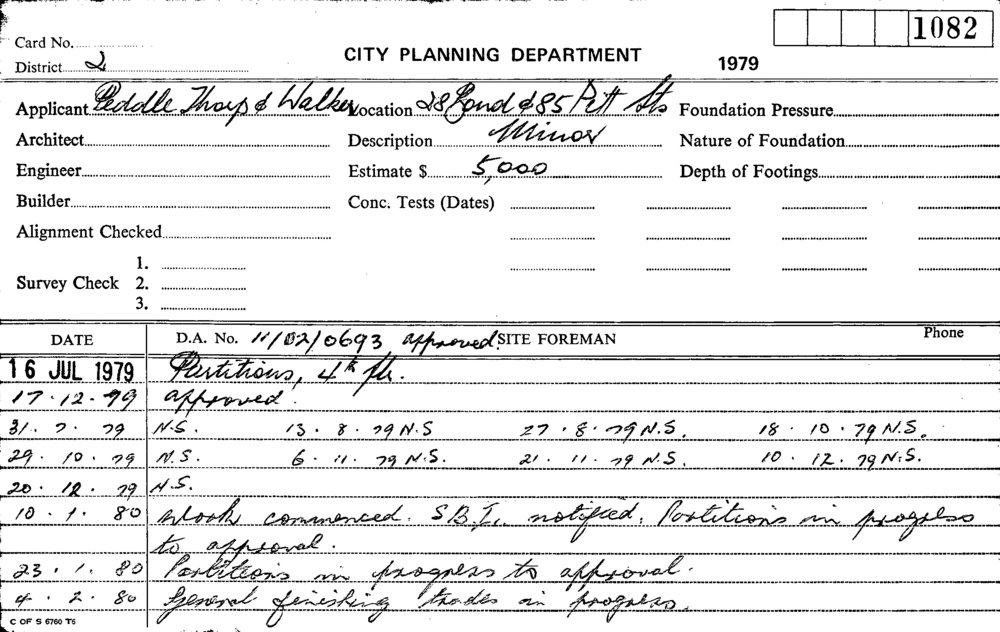 1082
Card No.
CITY PLANNING DEPARTMENT 1979
District 2
Applicant Peddle Thorp & Walker Location 28 Bond & 85 Pitt Sts Foundation Pressure
Architect Description Minor Nature of Foundation
Engineer Estimate $ 5,000 Depth of Footings
Builder Conc. Tests (Dates)
Alignment Checked
1.
Survey Check 2.
3.
DATE D.A. No. 11/02/0693 approved. SITE FOREMAN Phone
16 JUL 1979 Partitions, 4th flr.
17.12.79 approved.
31. 7. 79 N.S. 13. 8. 79 N.S 27. 8. 79 N.S. 18. 10. 79 N.S.
29. 10. 79 N.S. 6. 11. 79 N.S. 21. 11. 79 N.S. 10. 12. 79 N.S.
20. 12. 79 N.S.
10. 1. 80 Work commenced. S.B.I. notified. Partitions in progress
to approval.
23. 1. 80 Partitions in progress to approval.
4. 2. 80 General finishing trades in progress.
C OF S 6760 T6